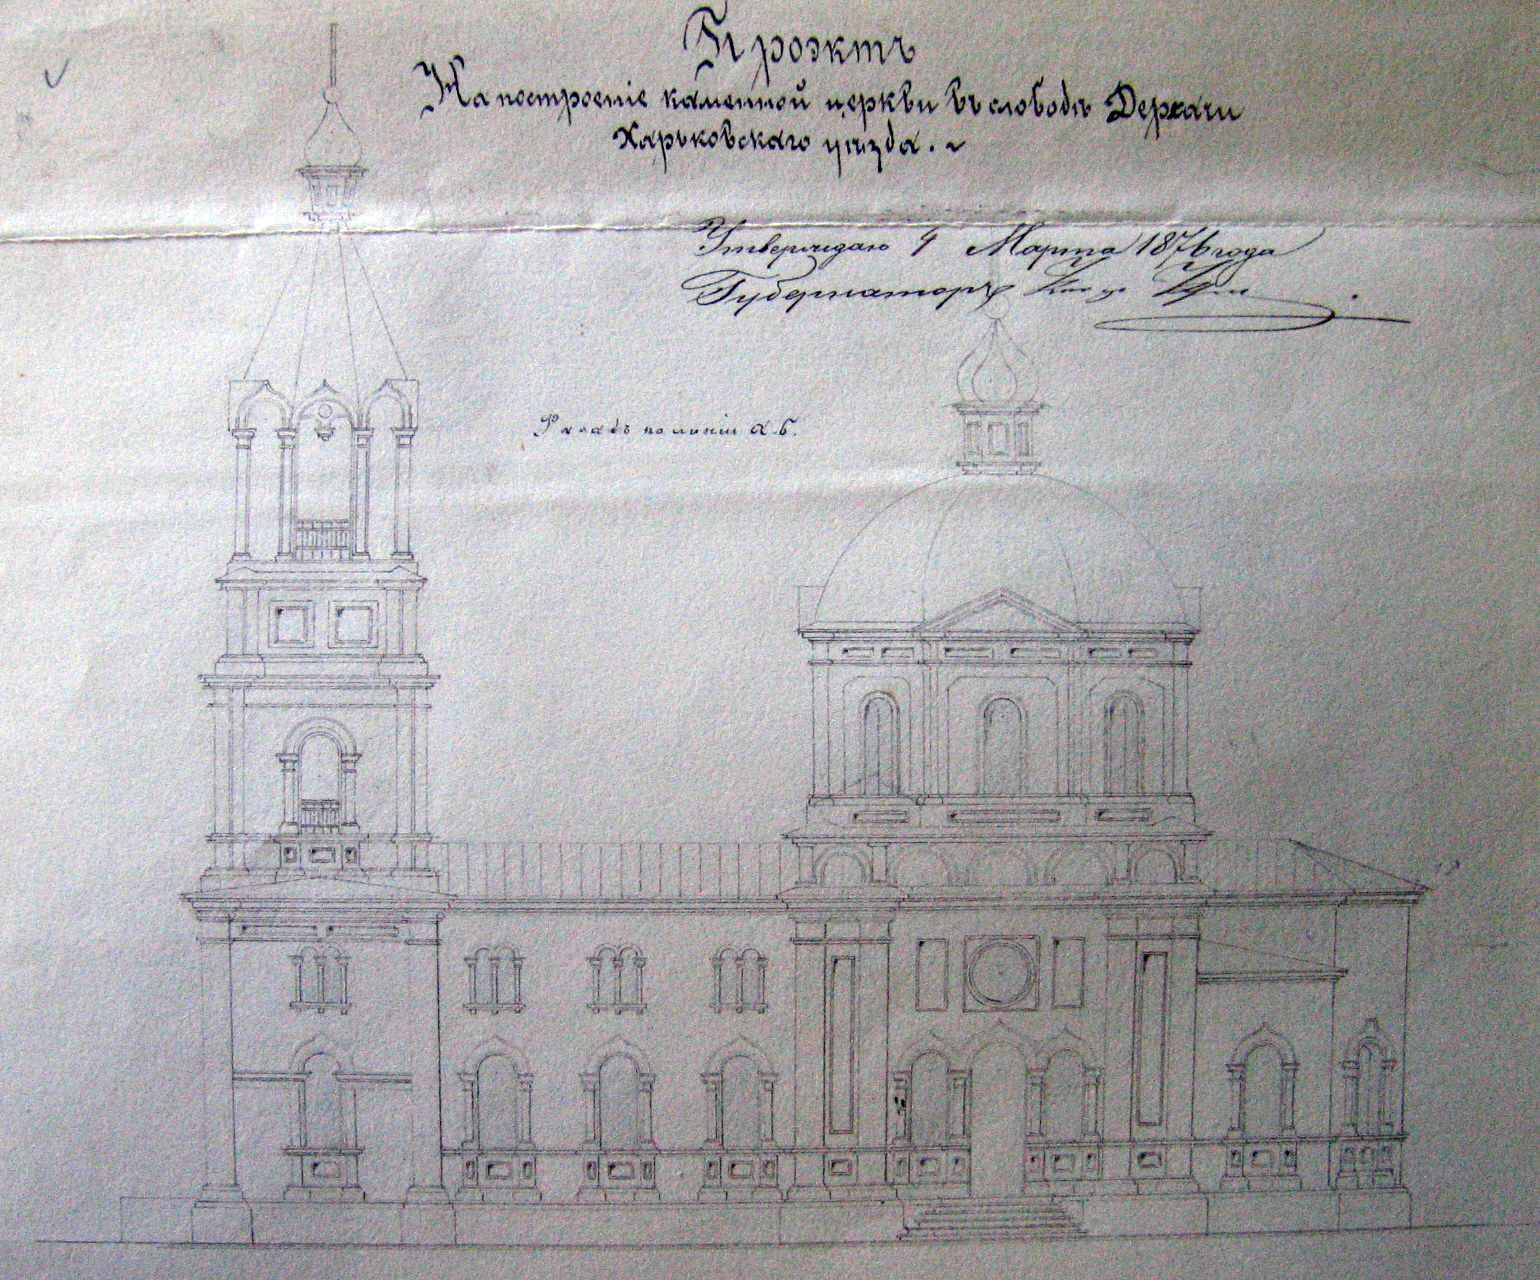 Проэктъ
На построеніе каменной церкви въ слободѣ Дергачи
Харьковскаго уѣзда.
Утверждаю 4 Марта 1876 года
Губернаторъ
Фасадъ по линіи А.Б.